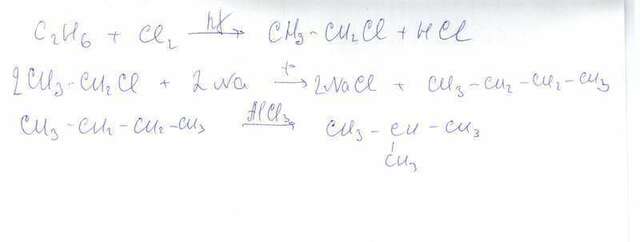 C2H6 + Cl2 hν→ CH3-CH2Cl + HCl
2CH3-CH2Cl + 2Na t→ 2NaCl + CH3-CH2-CH2-CH3
CH3-CH2-CH2-CH3 AlCl3→ CH3-CH-CH3
CH3